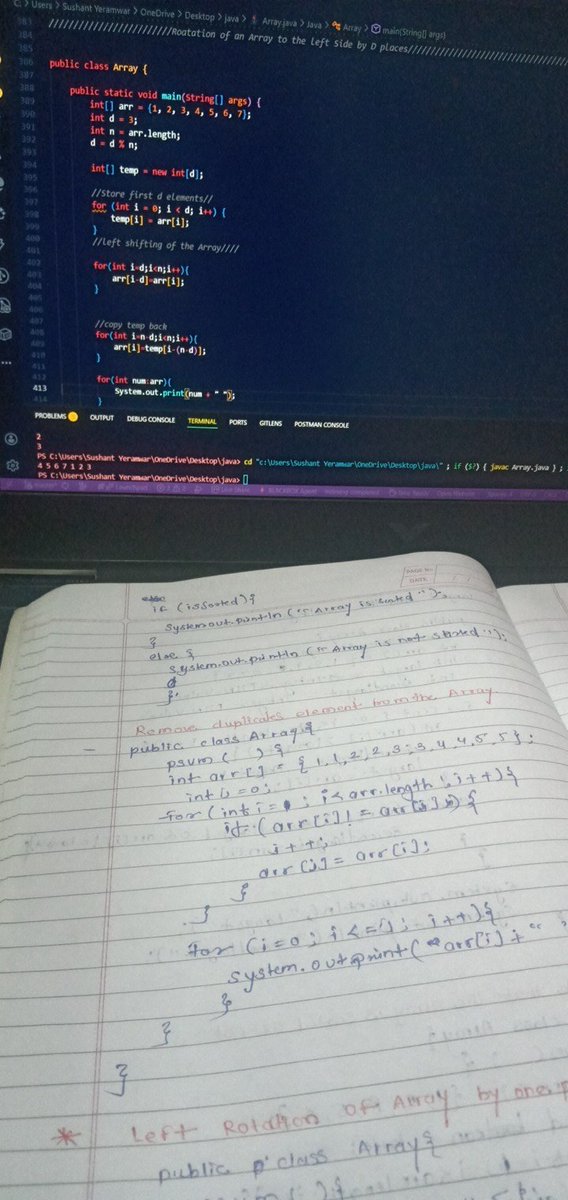 C: > Users > Sushant Yeramwar > OneDrive > Desktop > java > Array.java > Java > Array > main(String[] args)
383
384 //////////////////////////Roatation of an Array to the left Side by D places//////////////////////////////////
385
386 public class Array {
387
388 public static void main(String[] args) {
389 int[] arr = {1, 2, 3, 4, 5, 6, 7};
390 int d = 3;
391 int n = arr.length;
392 d = d % n;
393
394 int[] temp = new int[d];
395
396 //Store first d elements//
397 for (int i = 0; i < d; i++) {
398 temp[i] = arr[i];
399 }
400 //left shifting of the Array////
401
402 for(int i=d;i<n;i++){
403 arr[i-d]=arr[i];
404 }
405
406
407 //copy temp back
408 for(int i=n-d;i<n;i++){
409 arr[i]=temp[i-(n-d)];
410 }
411
412 for(int num:arr){
413 System.out.print(num + " ");
414 }
PROBLEMS OUTPUT DEBUG CONSOLE TERMINAL PORTS GITLENS POSTMAN CONSOLE
2
3
PS C:\Users\Sushant Yeramwar\OneDrive\Desktop\java> cd "c:\Users\Sushant Yeramwar\OneDrive\Desktop\java\" ; if ($?) { javac Array.java } ;
4 5 6 7 1 2 3
PS C:\Users\Sushant Yeramwar\OneDrive\Desktop\java>
PAGE No.
DATE
if (isSorted) {
System.out.println (" Array is sorted ");
}
else {
System.out.println (" Array is not sorted ");
}
Remove duplicates element from the Array
public class Array {
psvm ( ) {
int arr [ ] = { 1, 1, 2, 2, 3, 3, 4, 4, 5, 5 } ;
int j = 0;
for (int i = ; i < arr.length ; i++) {
if (arr [i] != arr [j]) {
j++;
arr [j] = arr [i];
}
}
for (i=0 ; i <= j ; i++) {
System.out.print( arr[i] + "
}
}
}
* Left Rotation of Array by one
public class Array {